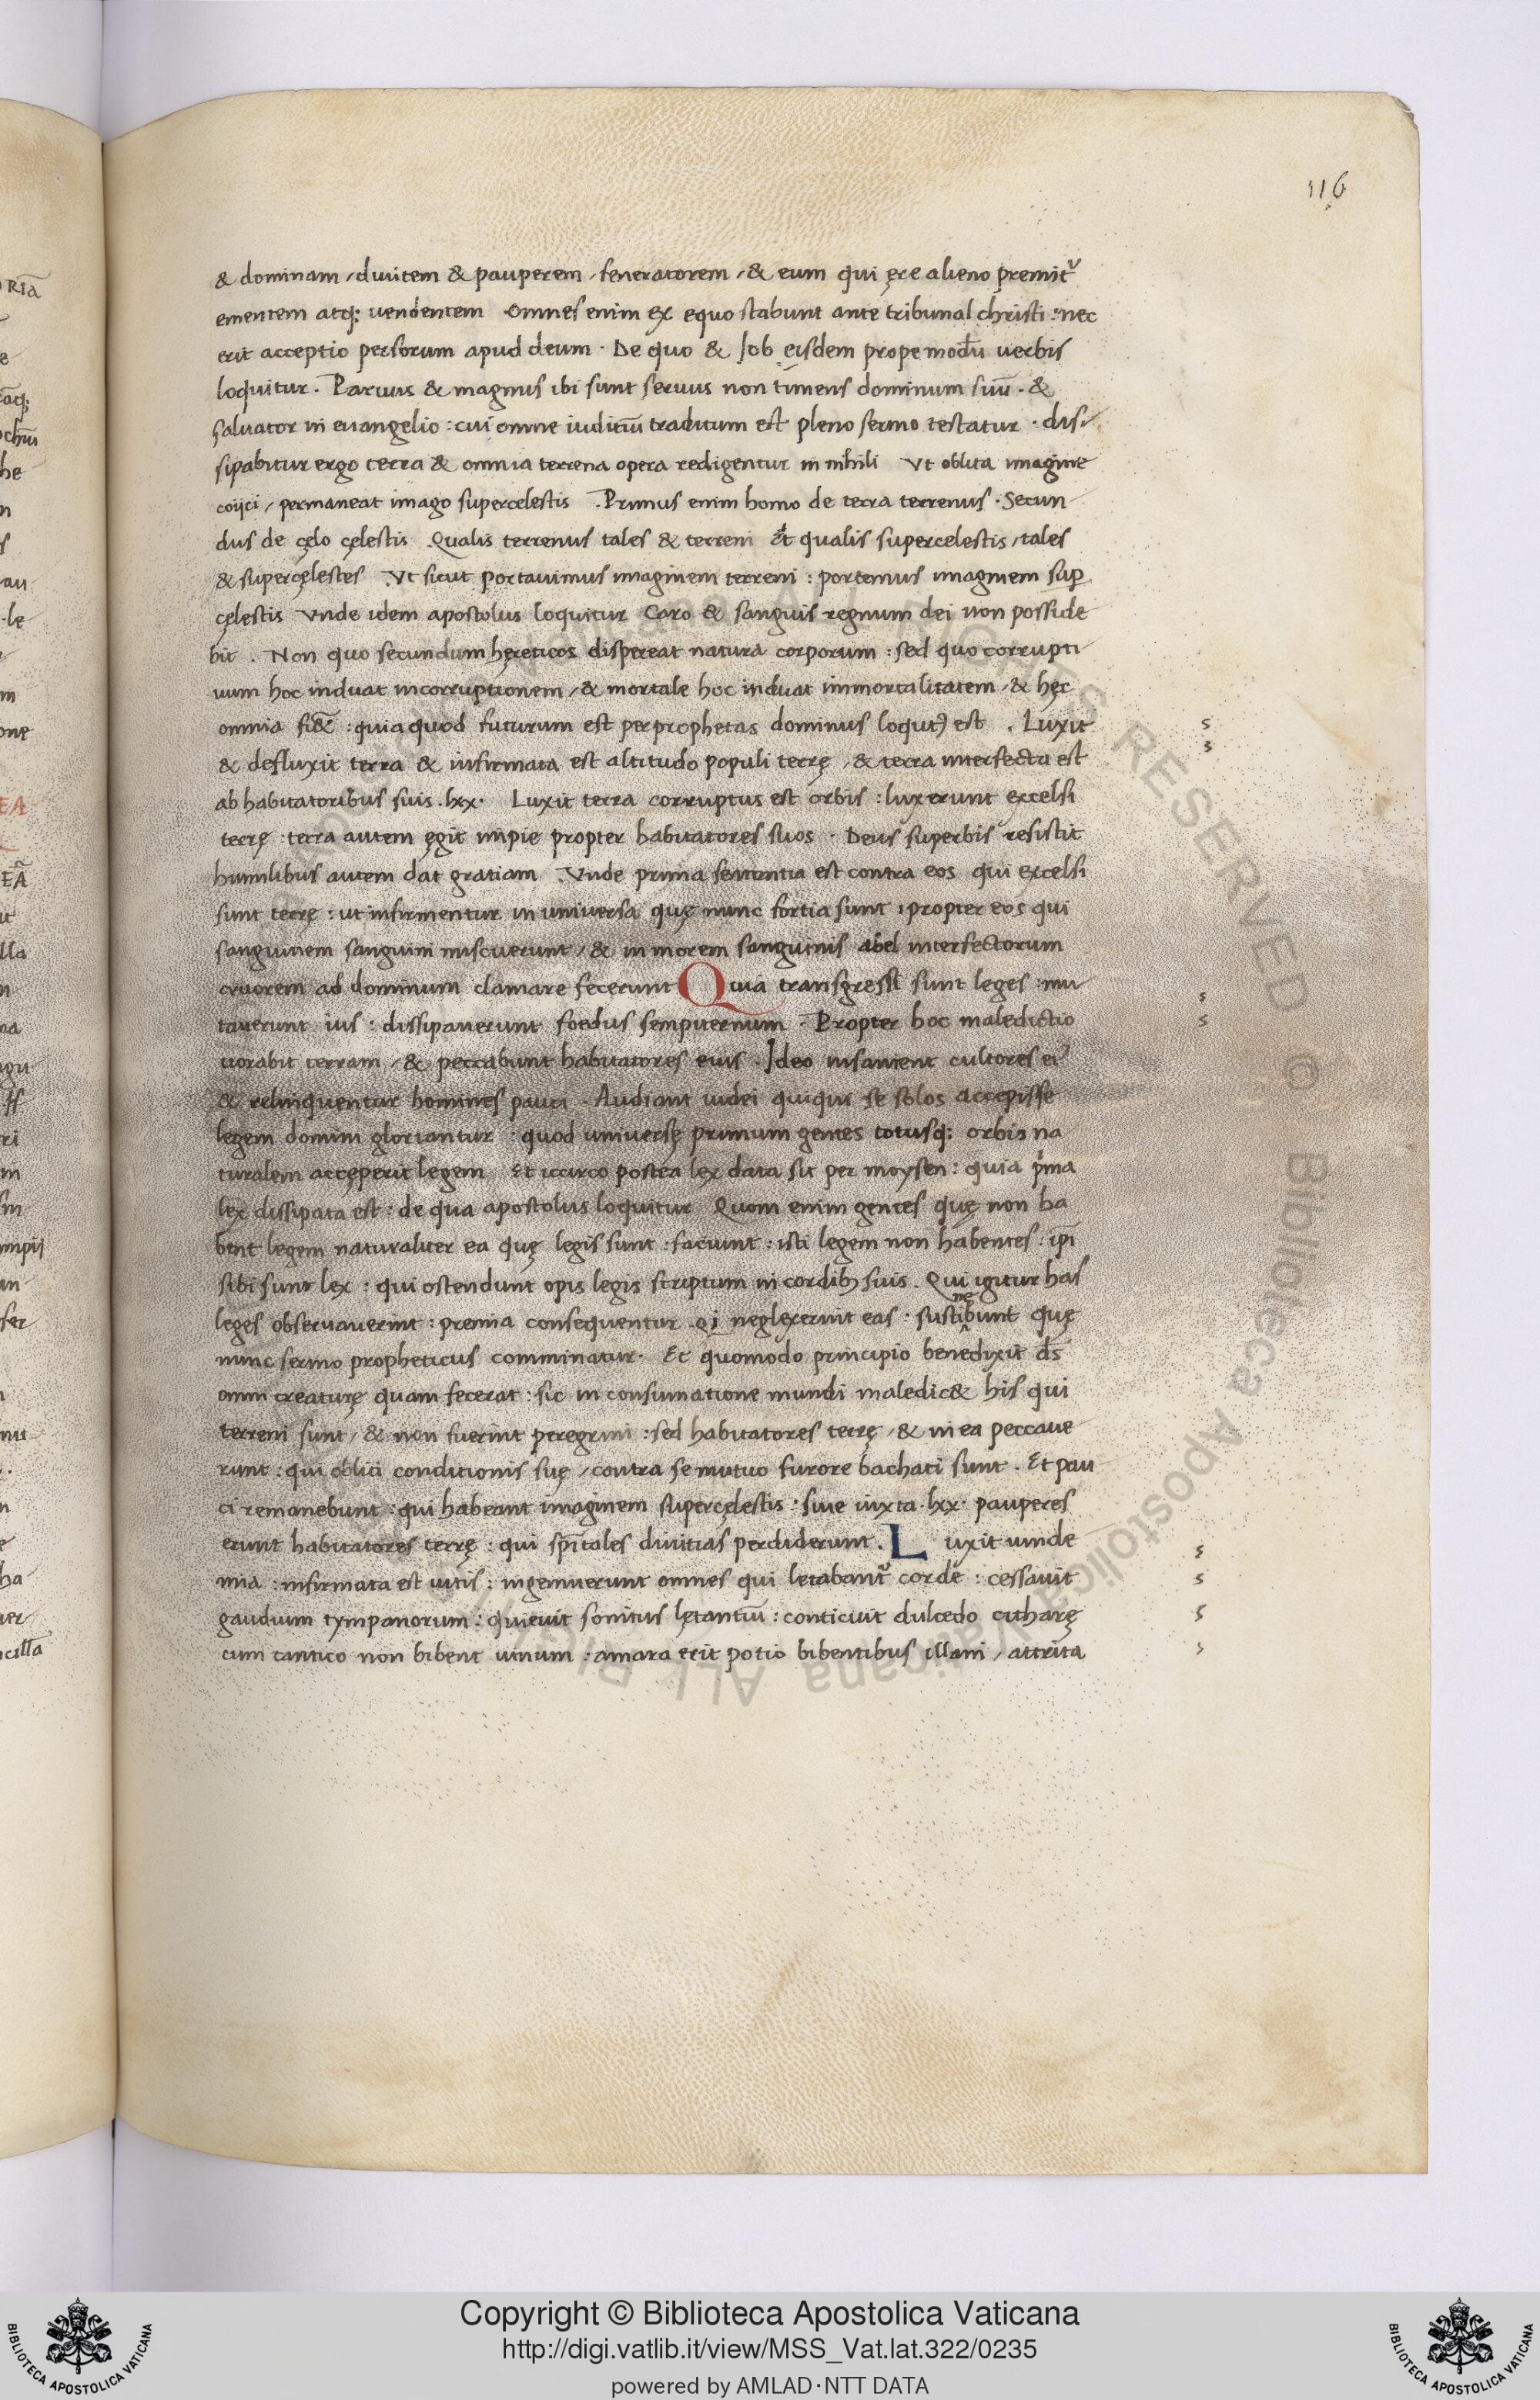 116
& dominam / diuitem & pauperem / feneratorem / & eum qui ęre alieno premit᷑
ementem atq; uendentem omnes enim ex equo stabunt ante tribunal christi : nec
erit acceptio persorum apud deum · De quo & Job eisdem prope modū uerbis
loquitur . Paruus & magnus ibi sunt seruus non timens dominum suū . &
saluator in euangelio : cui omne iuditiū traditum est pleno sermo testatur · dis
sipabitur ergo terra & omnia terrena opera redigentur in nihili Vt oblita imagine
coijci / permaneat imago supercelestis . Primus enim homo de terra terrenus · Secun
dus de cęlo cęlestis Qualis terrenus tales & terreni Et qualis supercelestis / tales
& supercęlestes Vt sicut portauimus imaginem terreni : portemus imaginem sup̱
cęlestis Vnde idem apostolus loquitur Caro & sanguis regnum dei non posside
bit . Non quo secundum hęreticos dispereat natura corporum : sed quo corrupti
uum hoc induat incorruptionem / & mortale hoc induat immortalitatem / & hęc
omnia fi& : quia quod futurum est per prophetas dominus locutꝰ est . Luxit
& defluxit terra & infirmata est altitudo populi terrę / & terra interfecta est
ab habitatoribus suis . lxx · Luxit terra corruptus est orbis : luxerunt excelsi
terrę : terra autem ęgit impie propter habitatores suos · Deus superbis resistit
humilibus autem dat gratiam Vnde prima sententia est contra eos qui excelsi
sunt terrę : ut infirmentur in uniuersa quę nunc fortia sunt : propter eos qui
sanguinem sanguini miscuerunt / & in morem sanguinis abel interfectorum
cruorem ad dominum clamare fecerunt Quia transgressi sunt leges : mu
tauerunt ius : dissipauerunt foedus sempiternum · Propter hoc maledictio
uorabit terram / & peccabunt habitatores eius . Ideo insanient cultores eiꝰ
& relinquentur homines pauci . Audiant iudei quiqui se solos accepisse
legem domini gloriantur : quod uniuersę primum gentes totusq; orbis na
turalem accęperit legem Et iccirco postea lex data sit per moysen : quia pͥma
lex dissipata est : de qua apostolus loquitur Quom enim gentes quę non ha
bent legem naturaliter ea quę legis sunt : faciunt : isti legem non habentes : ip̄i
sibi sunt lex : qui ostendunt opis legis scriptum in cordibꝫ suis . Qui igitur has
leges obseruauerint : premia consequentur . qi neglexerint eas : susti^ne^bunt quę
nunc sermo propheticus comminatur · Et quomodo principio benedixit ds̄
omni creaturę quam fecerat : sic in consumatione mundi maledic& his qui
terreni sunt / & non fuerint peregrini : sed habitatores terrę / & in ea peccaue
runt : qui obliti conditionis suę / contra se mutuo furore bachati sunt . Et pau
ci remanebunt : qui habeant imaginem supercęlestis : siue iuxta · lxx · pauperes
erunt habitatores terrę : qui sp̄itales diuitias perdiderunt . Luxit uinde
mia : infirmata est uitis : ingemuerunt omnes qui letabant᷑ corde : cessauit
gaudium tympanorum : quieuit sonitus lętantiū : conticuit dulcedo citharę
cum cantico non bibent uinum : amara erit potio bibentibus illam / attrita
Copyright © Biblioteca Apostolica Vaticana
http://digi.vatlib.it/view/MSS_Vat.lat.322/0235
powered by AMLAD·NTT DATA